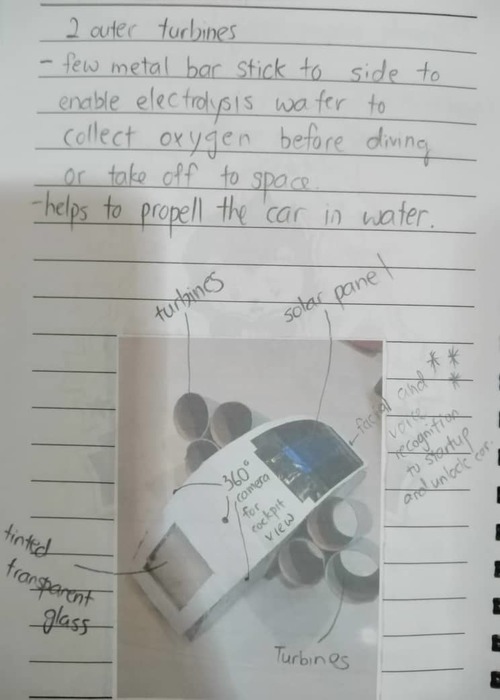 2 outer turbines
- few metal bar stick to side to
enable electrolysis water to
collect oxygen before diving
or take off to space.
- helps to propell the car in water.
turbines
solar panel
**
*
facial and
voice
recognition
to startup
and unlock car.
360°
camera
for
cockpit
view
tinted
transparent
glass
Turbines